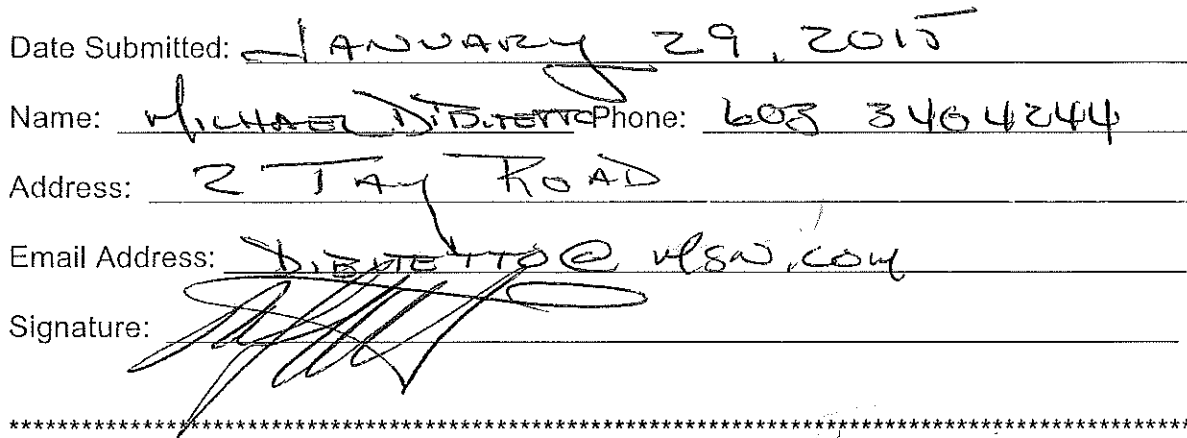 Date Submitted: JANUARY 29, 2015
Name: MICHAEL DIBITETTO Phone: 603 340 4244
Address: 2 TAY ROAD
Email Address: DIBITETTO@msn.com
Signature:
********************************************************************************